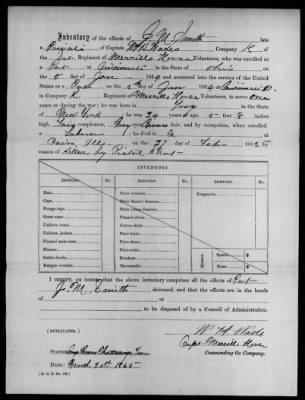 Inventory of the effects of J. M. Smith late
a Private of Captain W. H. Wades Company K of
the Regiment of Merrills Horse Volunteers, who was enrolled
at Cincinnati in the State of Ohio on
the 5 day of Jan 1864 and mustered into the service of the United
States as a on the day of Jan 1864 at Cincinnati O.
in Company K Regiment of Merrills Horse Volunteers, to serve
years or during the war; he was born in
of New York he was 24 years of age 5 feet 8 inches
high, complexion, eyes, Brown hair, and by occupation, when enrolled,
a Laborer; he died in
Cairo Ills on the 27 day of Feb 1865
reason of Killed by Pistol Shot
INVENTORY
ARTICLES. No. ARTICLES. No. ARTICLES. No.
Hats
Caps
Forage caps
Great coats
Uniform coats
Uniform jackets
Flannel sack coats
Blouses
Stable frocks
Fatigue overalls
Pairs trowsers
Pairs flannel drawers
Pairs cotton drawers
Flannel shirts
Cotton shirts
Pairs boots
Pairs shoes
Pairs socks
Blankets
Haversacks
Knapsacks
Money
Specie
Notes
I CERTIFY, ON HONOR, that the above inventory comprises all the effects of
J. M. Smith deceased, and that the effects are in the hands
of at
to be disposed of by a Council of Administration.
(DUPLICATES.)
W. H. Wade
Capt Merrill Horse
Commanding the Company.
STATION: Chattanooga Tenn
DATE: March 20th 1865